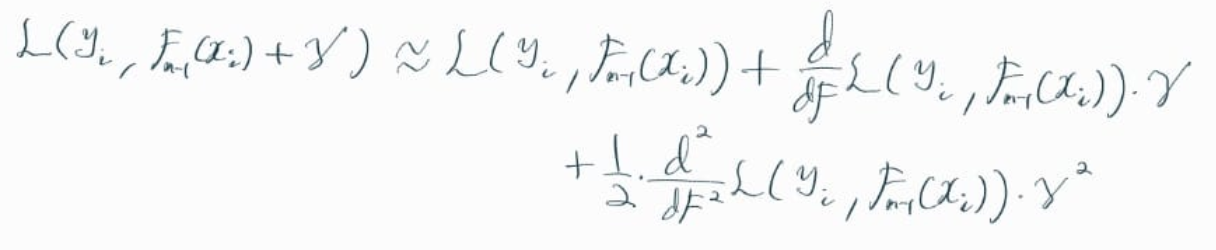 L(y_i, F_{m-1}(x_i) + γ) ≈ L(y_i, F_{m-1}(x_i)) + d/dF L(y_i, F_{m-1}(x_i)) · γ
+ 1/2 · d²/dF² L(y_i, F_{m-1}(x_i)) · γ²